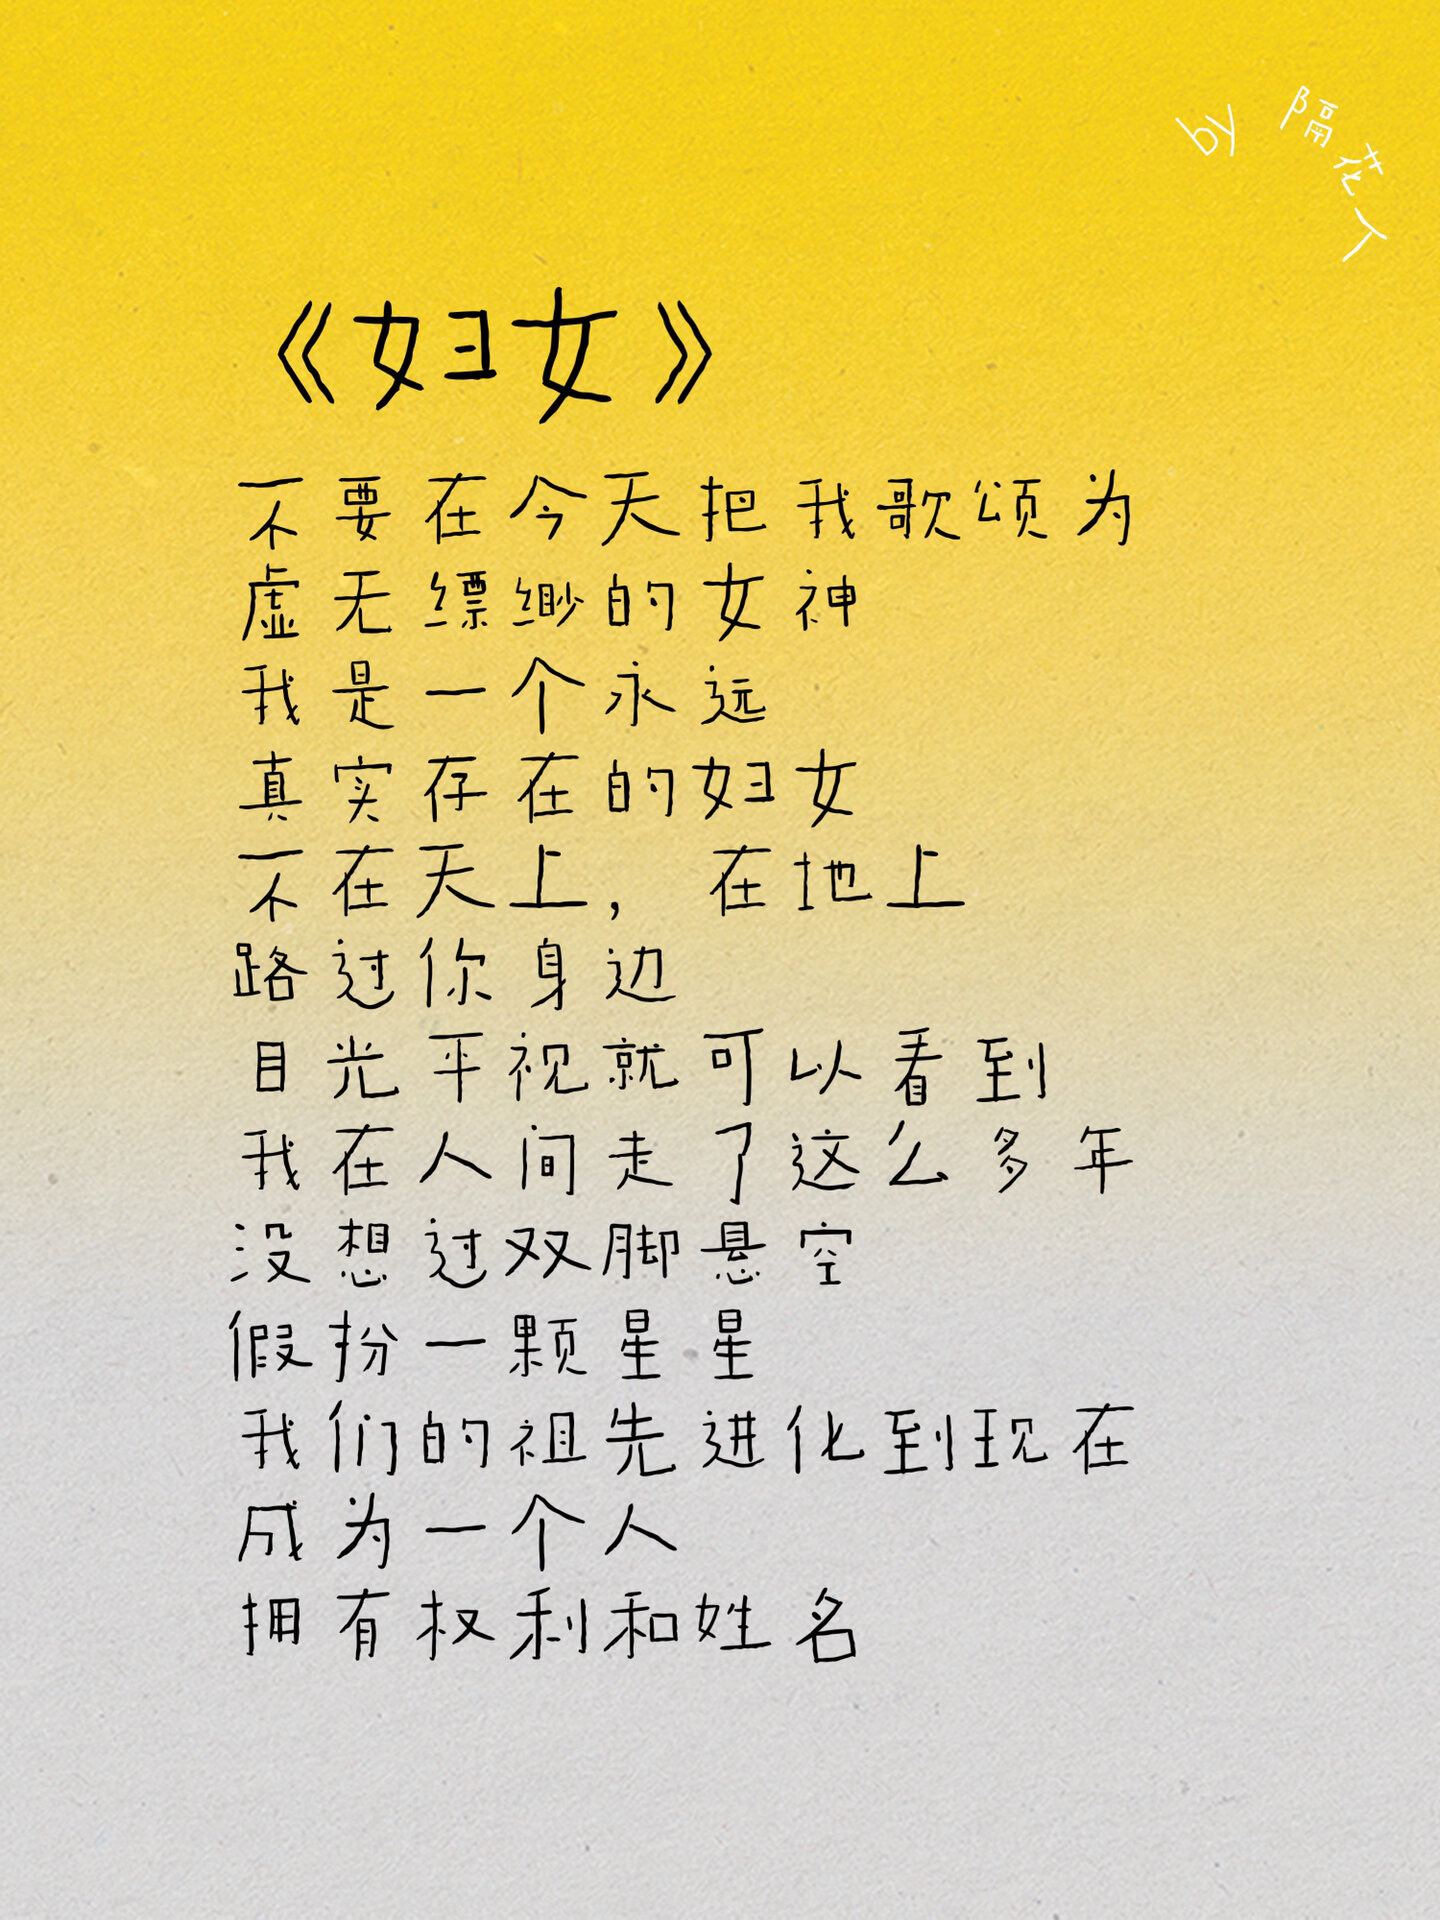 by 隔花人
《妇女》
不要在今天把我歌颂为
虚无缥缈的女神
我是一个永远
真实存在的妇女
不在天上，在地上
路过你身边
目光平视就可以看到
我在人间走了这么多年
没想过双脚悬空
假扮一颗星星
我们的祖先进化到现在
成为一个人
拥有权利和姓名